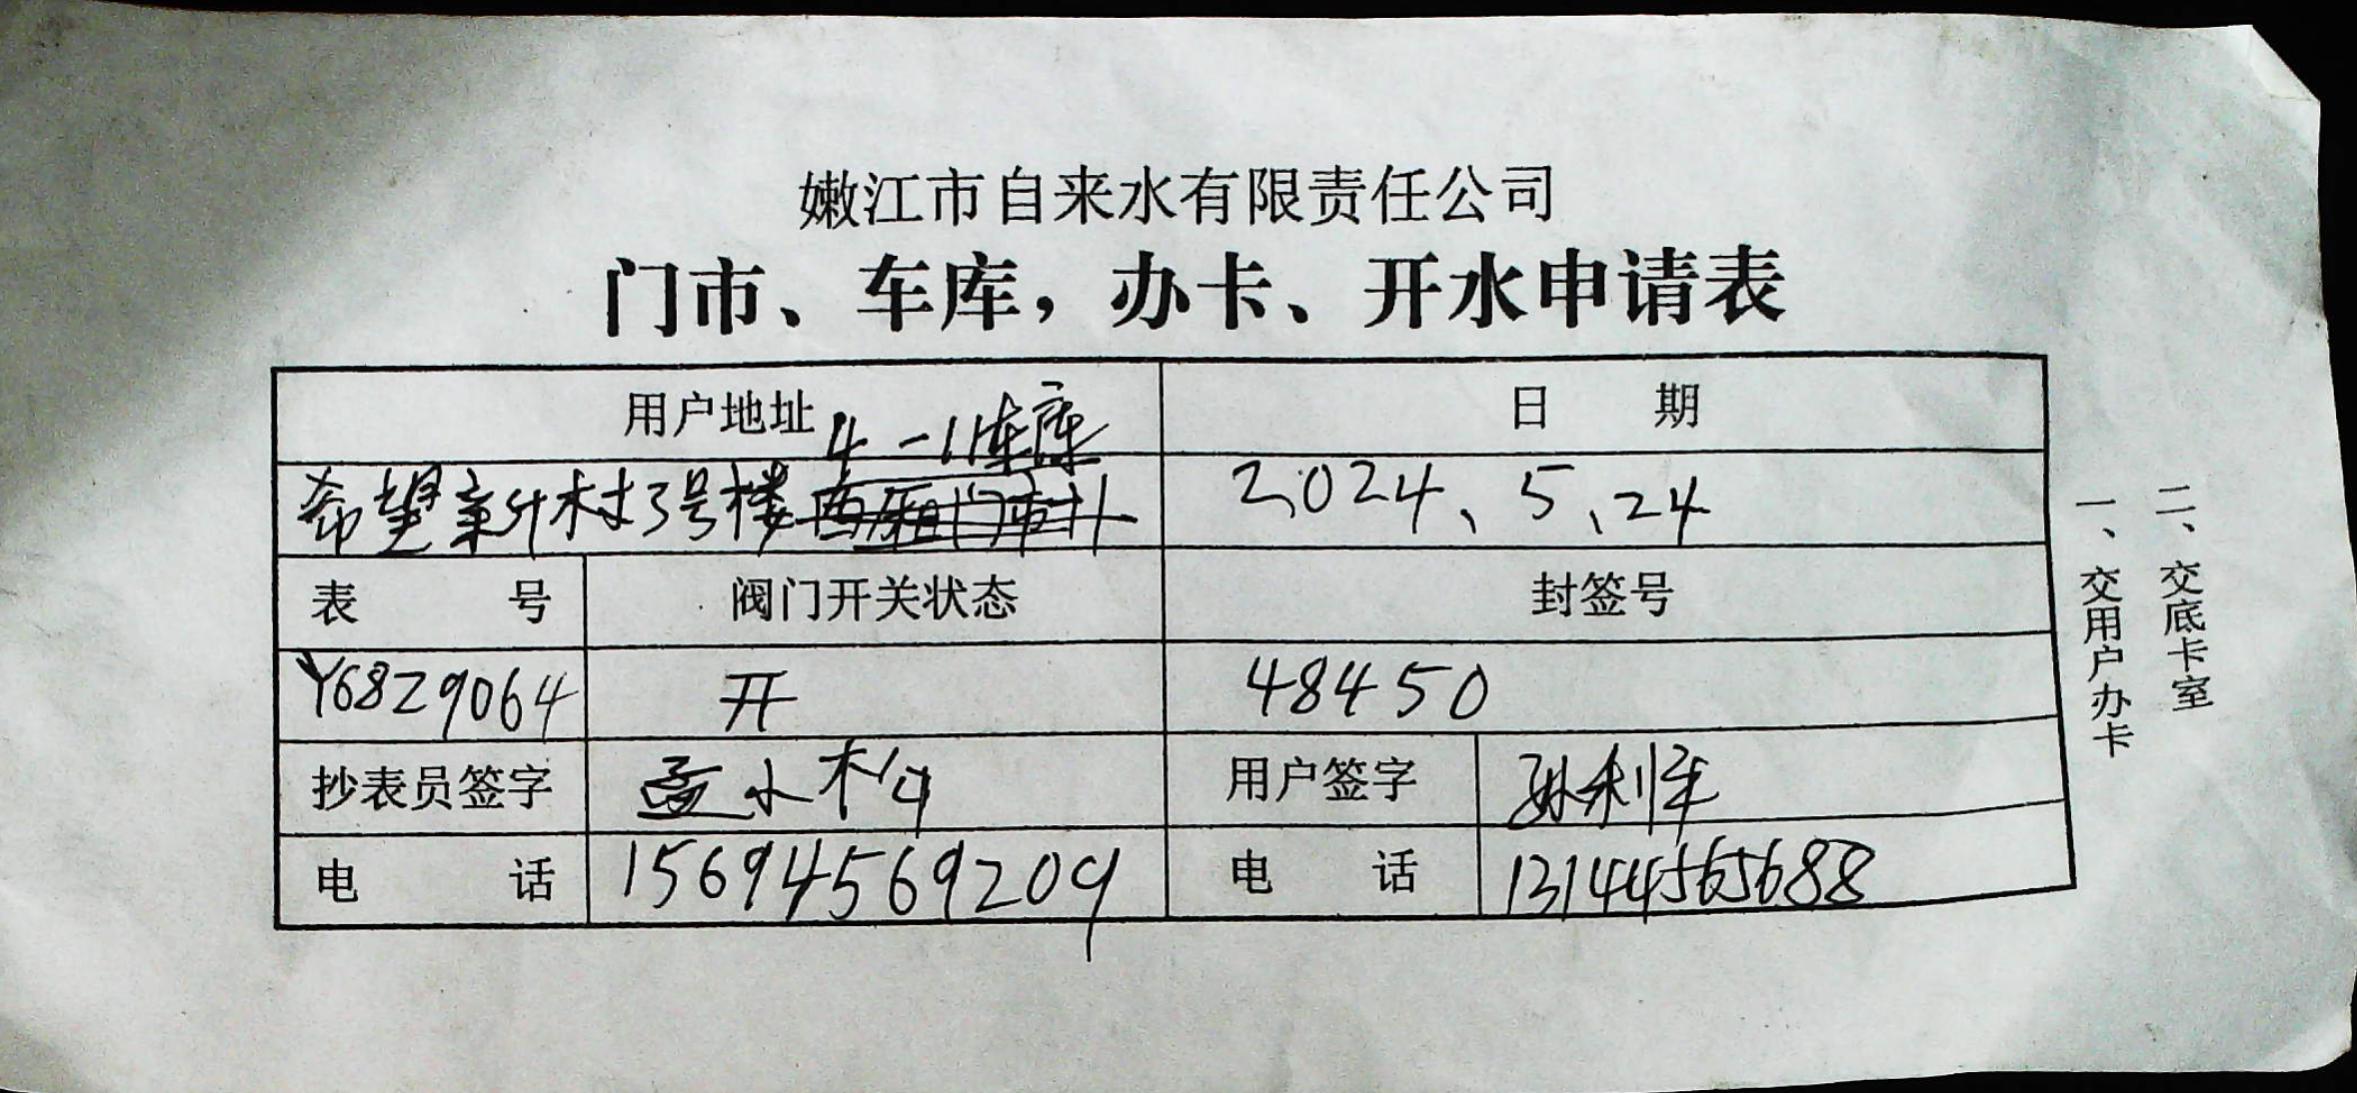 嫩江市自来水有限责任公司
门市、车库，办卡、开水申请表
用户地址 日 期
4-11车库
希望新村3号楼 2024、5、24
表 号 阀门开关状态 封签号
Y6829064 开 48450
抄表员签字 孟小 用户签字 孙利
电 话 15694569209 电 话 13144565688
一、交用户办卡
二、交底卡室